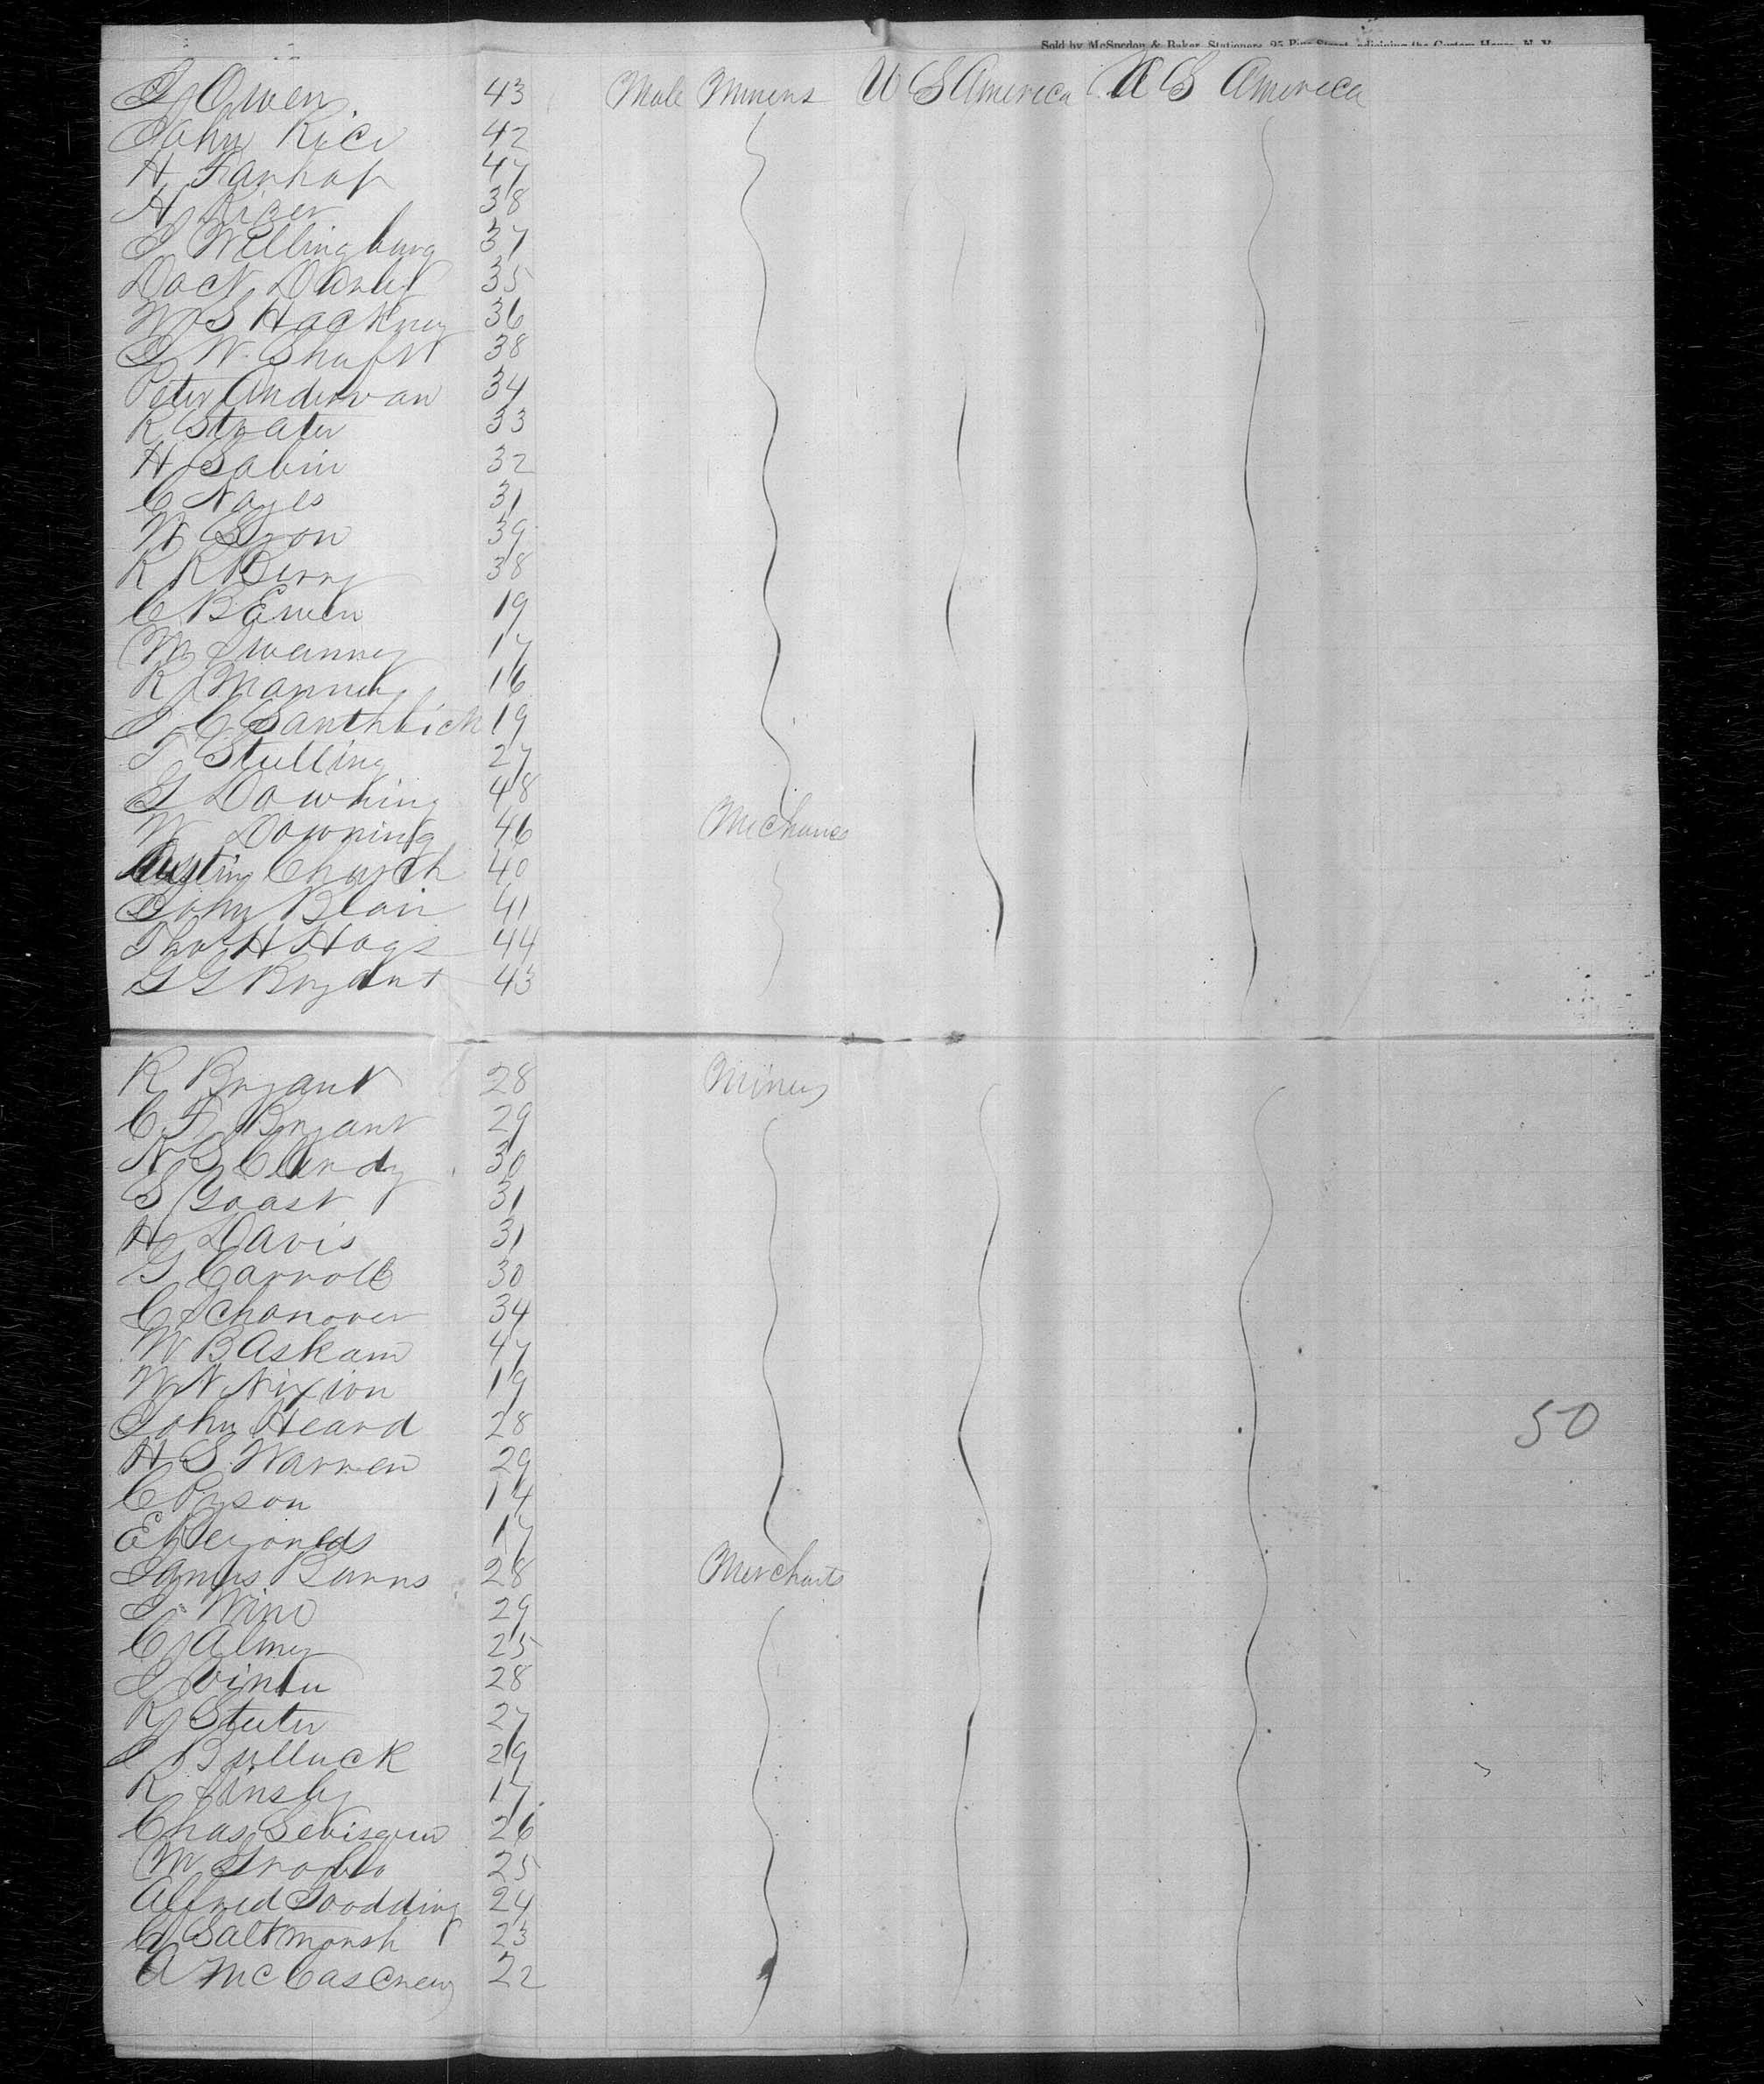 Sold by McSpedon & Baker, Stationers, 25 Pine Street, adjoining the Custom House, N. Y.
J Owen 43 Male Miners U S America U S America
John Rice 42
H 47
A Kizer 38
J Willingburg 37
Doct Darby 35
W S Hackney 36
J W Shaft 38
Peter Anderwan 34
R Strater 33
H Sabin 32
C Noyes 31
W Lyon 39
R R Berry 38
C B Ewen 19
M Swanney 17
R Manney 16
J C 19
T Stelling 27
G Downing 48
W Downing 46 Mechanics
Austin Church 40
John Blair 41
Thos H Hogs 44
G G Bryant 43
R Bryant 28 Miners
C F Bryant 29
N S Clundy 30
S Goast 31
H Davis 31
G Carroll 30
C Schonover 34
W B Askam 47
W N Nixion 19
John Heard 28
50
H S Warren 29
C Pyson 14
E Reyonlds 17
James Burns 28 Merchants
J Wine 29
C Almy 25
J 28
R Steeter 27
J Bulluck 29
R 17
Chas 26
M 25
Alfred Goodding 24
C Saltmarsh 23
A 22